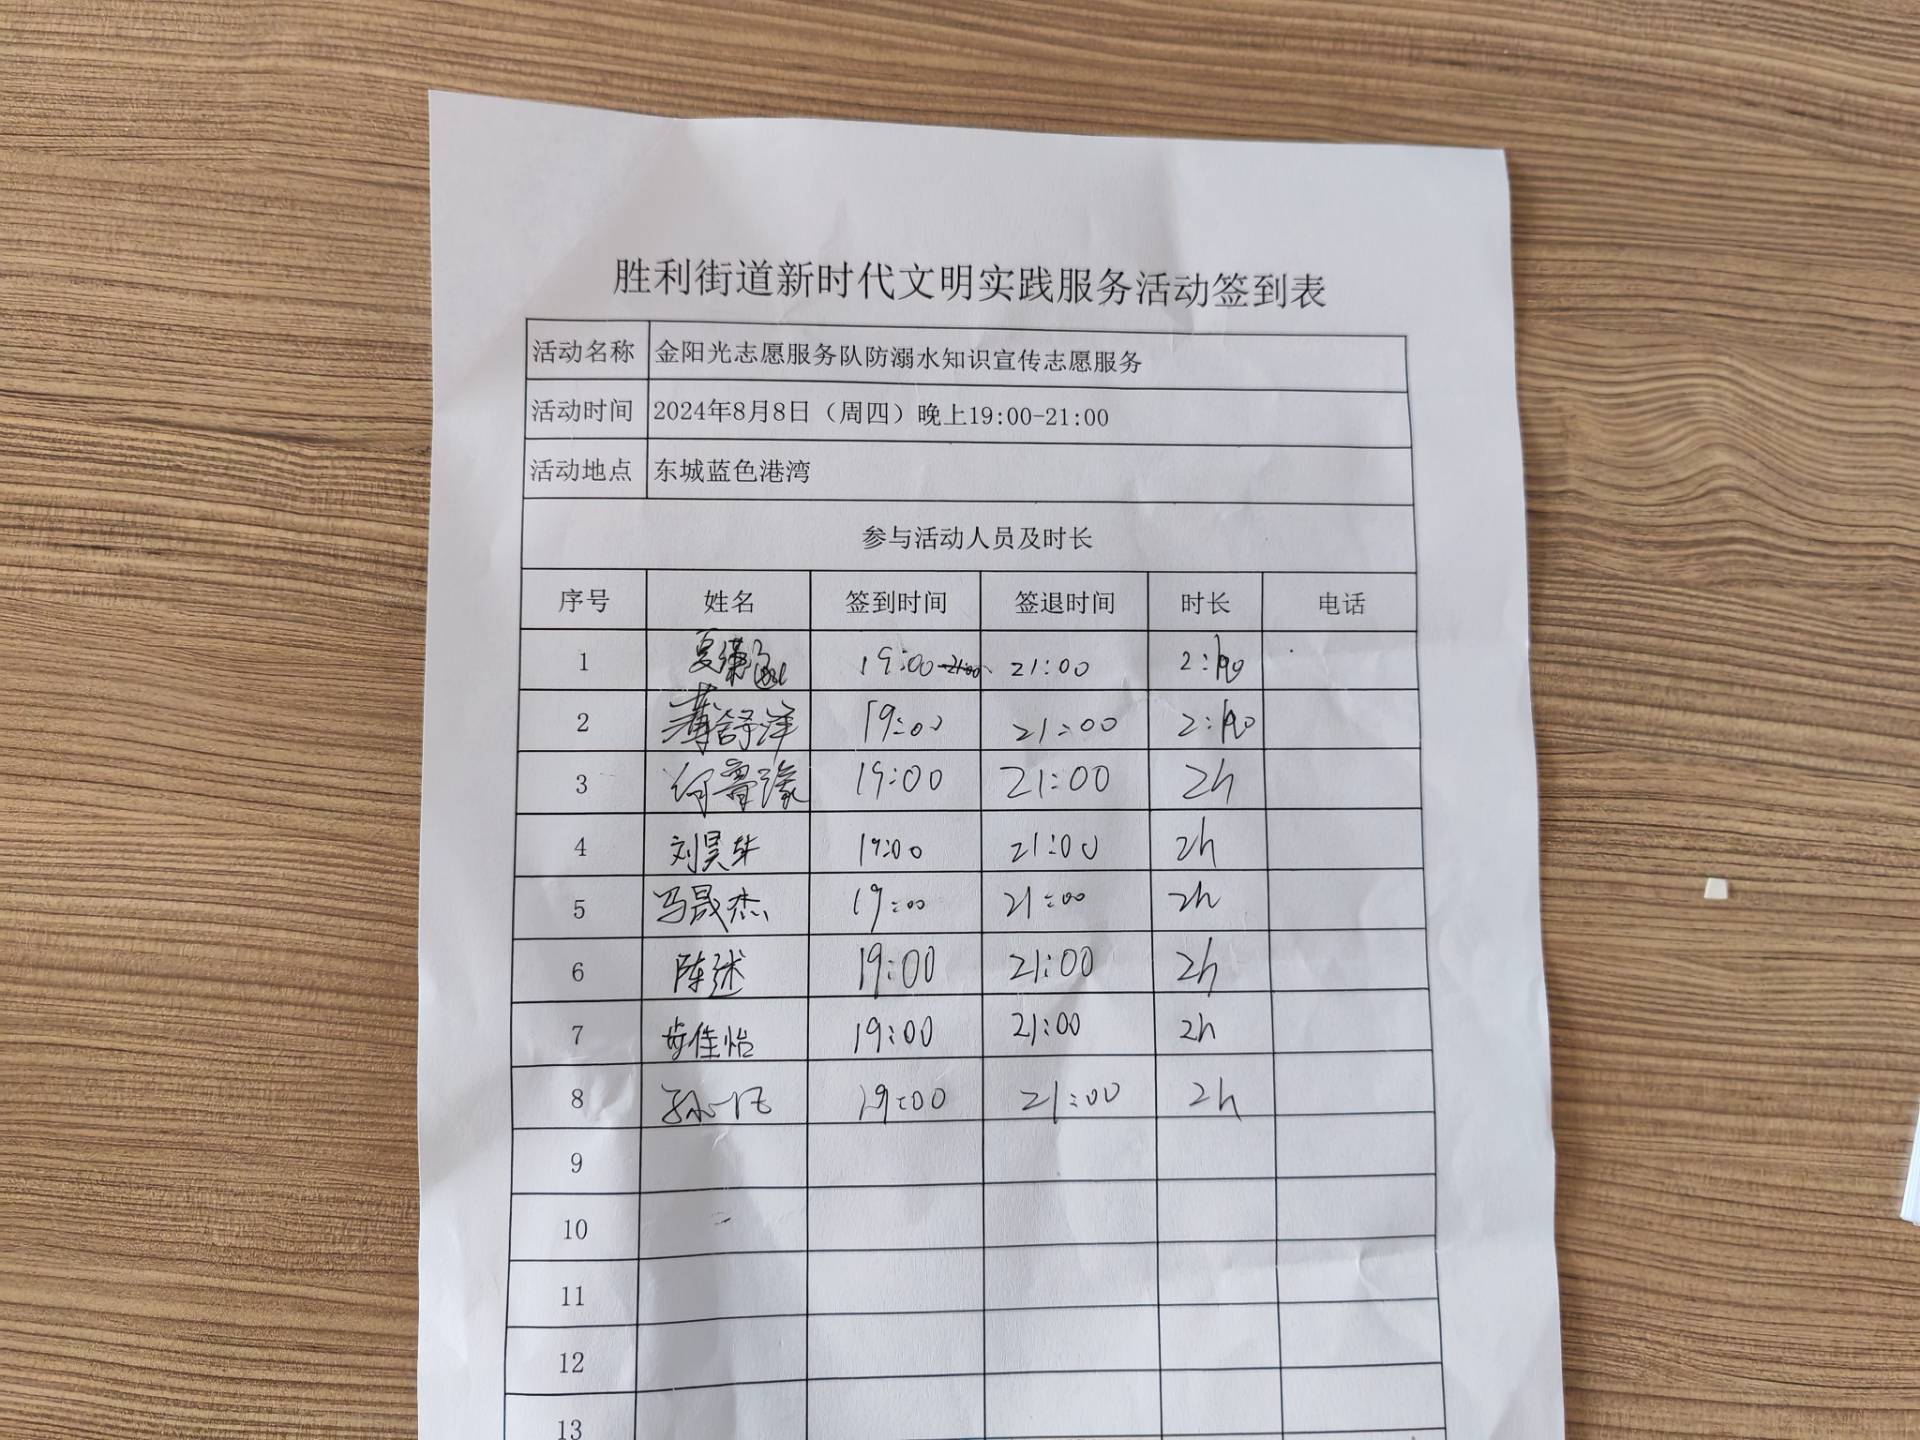 胜利街道新时代文明实践服务活动签到表
活动名称 金阳光志愿服务队防溺水知识宣传志愿服务
活动时间 2024年8月8日（周四）晚上19:00-21:00
活动地点 东城蓝色港湾
参与活动人员及时长
序号 姓名 签到时间 签退时间 时长 电话
1 19:00 21:00
2 薄舒洋 19:00 21:00
3 19:00 21:00 2h
4 刘昊 19:00 21:00 2h
5 冯晟杰 19:00 21:00 2h
6 陈述 19:00 21:00 2h
7 步佳怡 19:00 21:00 2h
8 孙一 19:00 21:00 2h
9
10
11
12
13